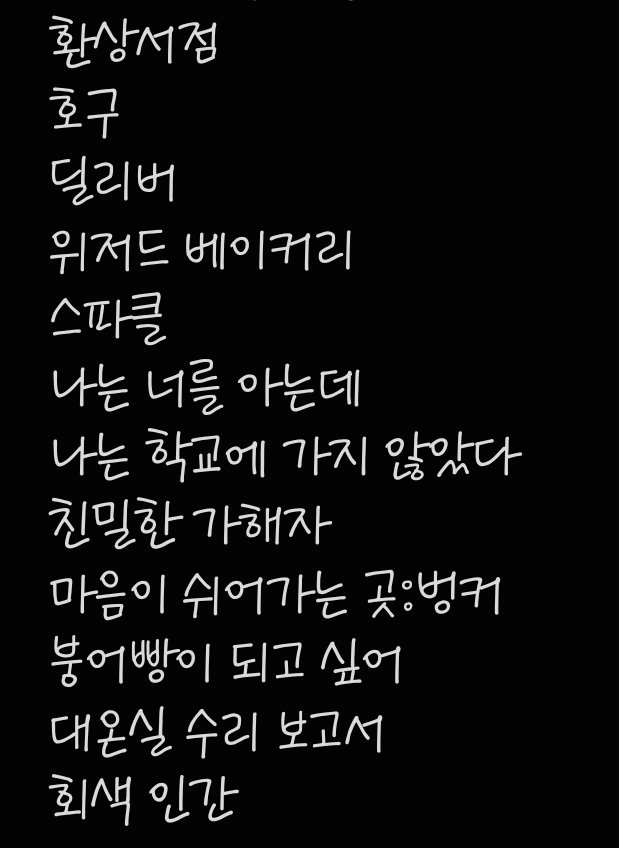 환상서점
호구
딜리버
위저드 베이커리
스파클
나는 너를 아는데
나는 학교에 가지 않았다
친밀한 가해자
마음이 쉬어가는 곳:벙커
붕어빵이 되고 싶어
대온실 수리 보고서
회색 인간